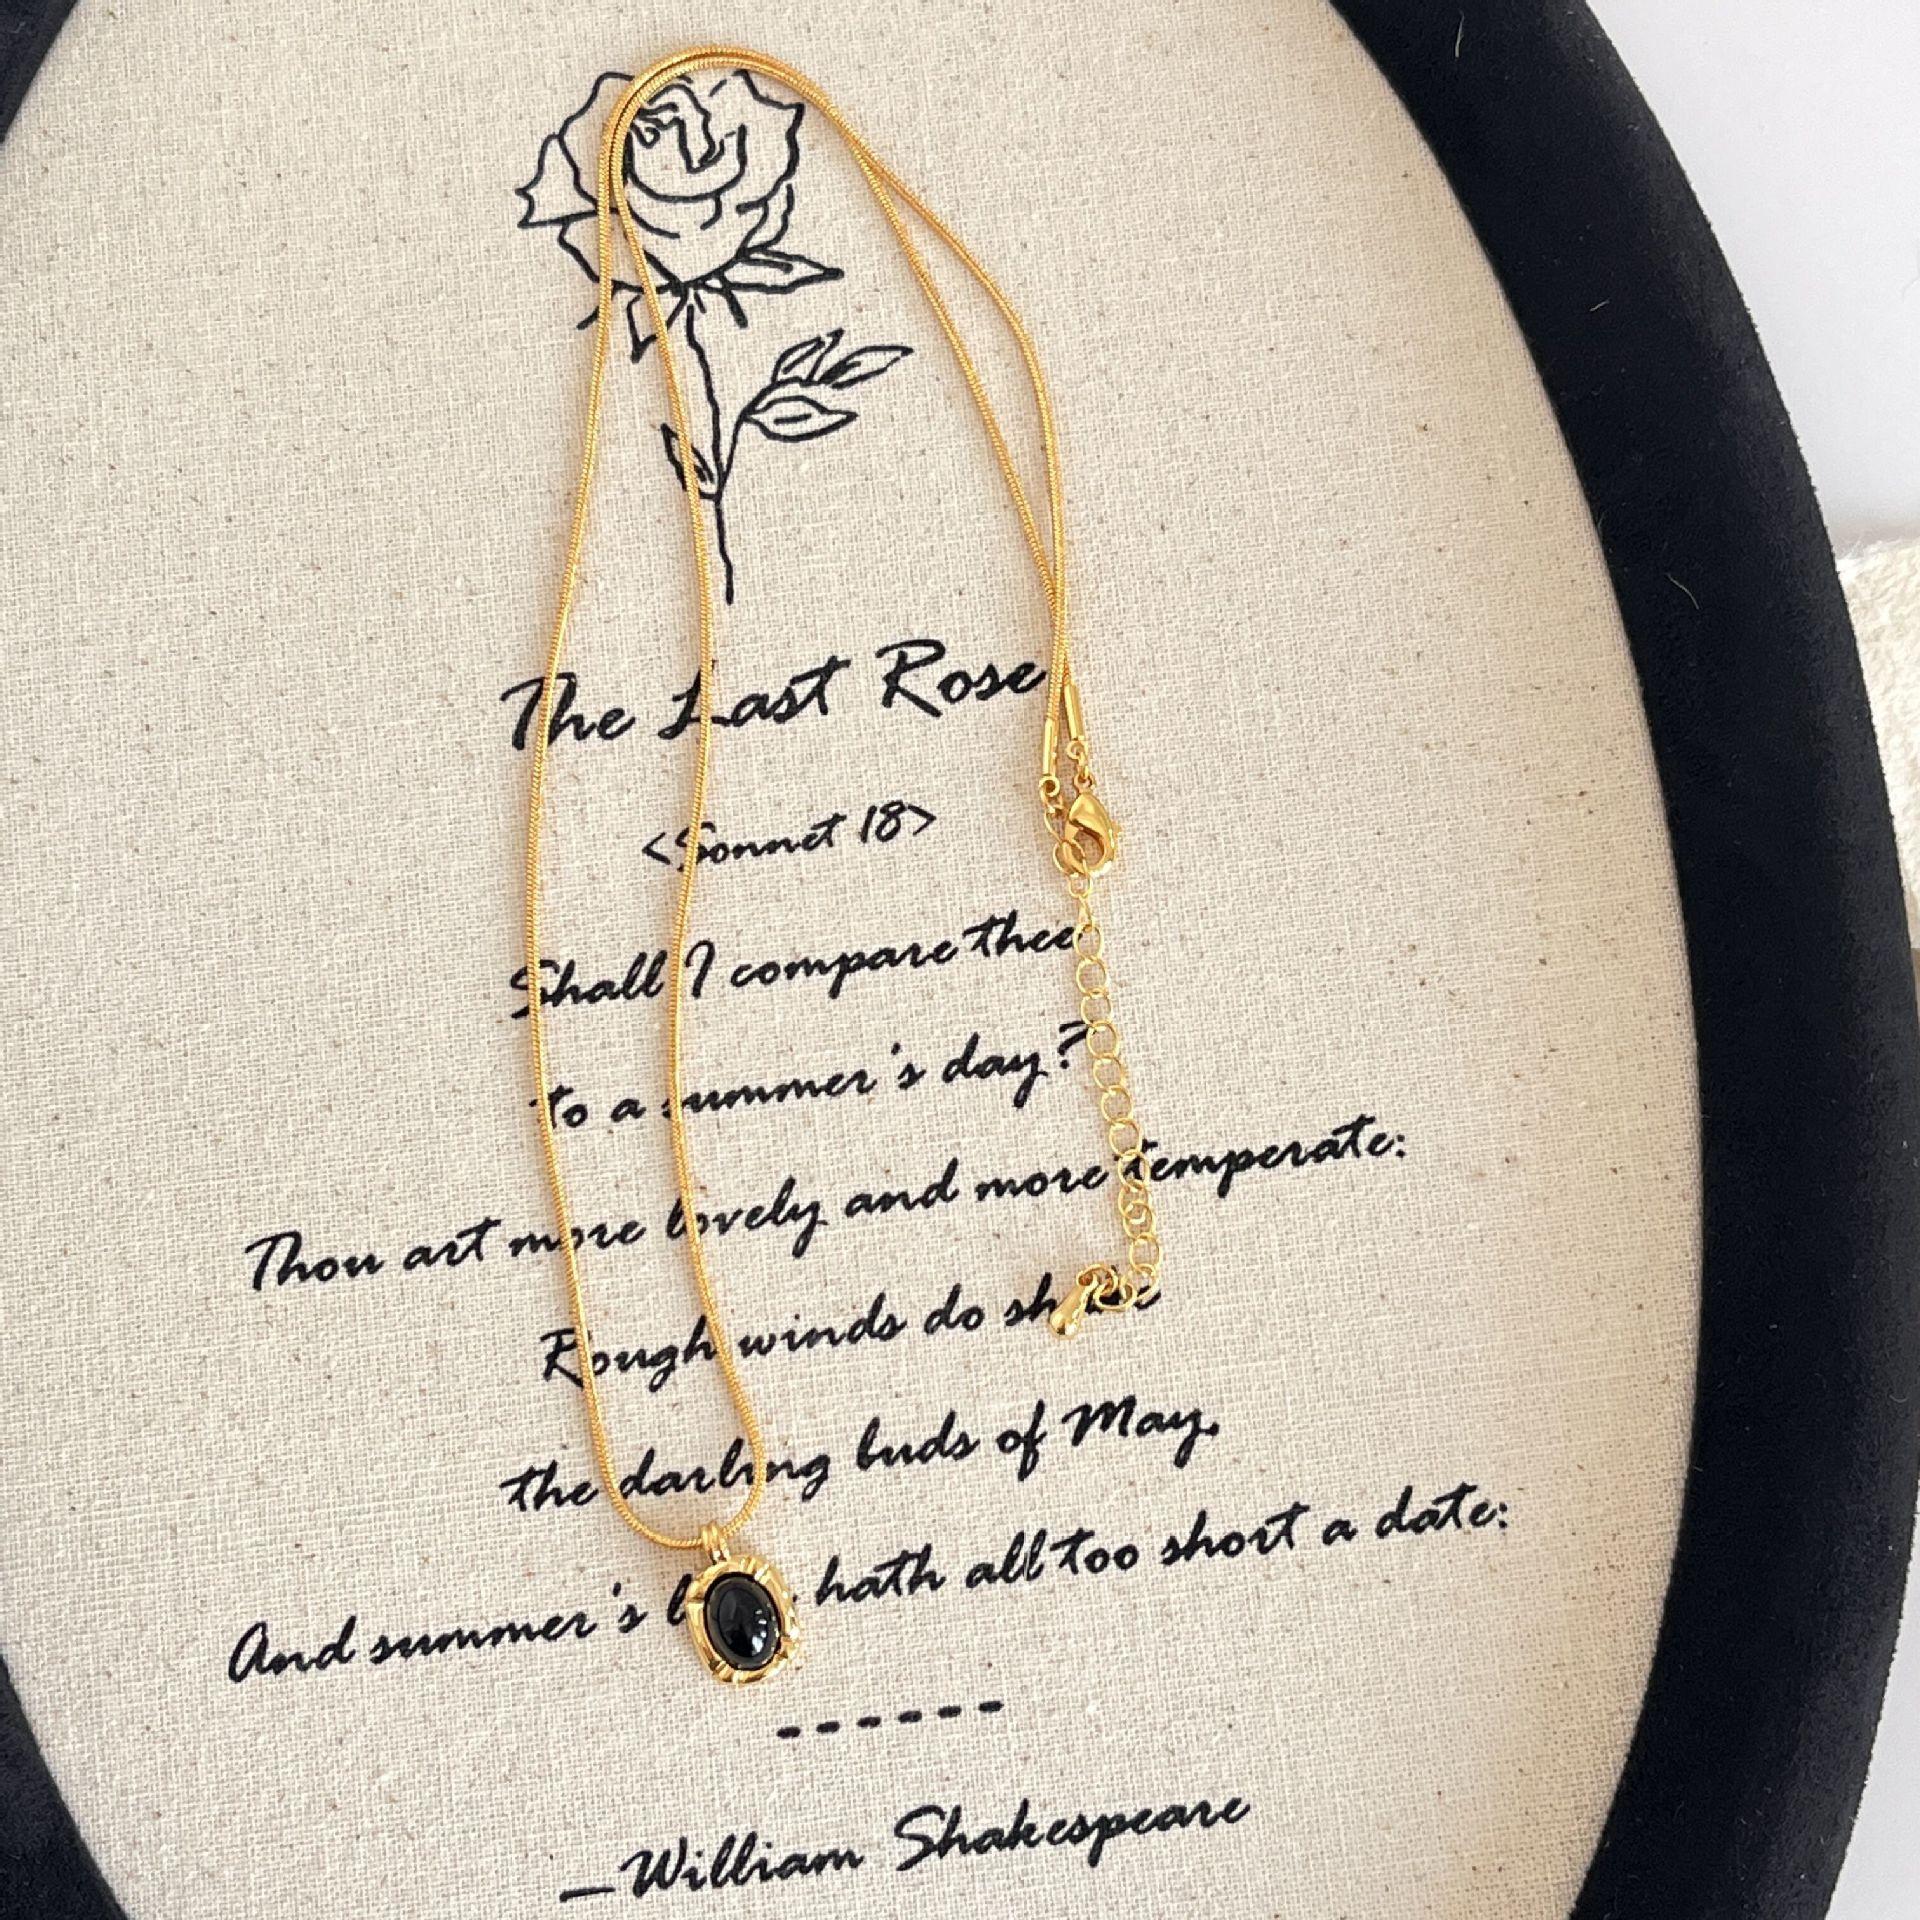 The Last Rose
<Sonnet 18>
Shall I compare thee
to a summer's day?
Thou art more lovely and more temperate:
Rough winds do shake
the darling buds of May,
And summer's hath all too short a date:
------
—William Shakespeare